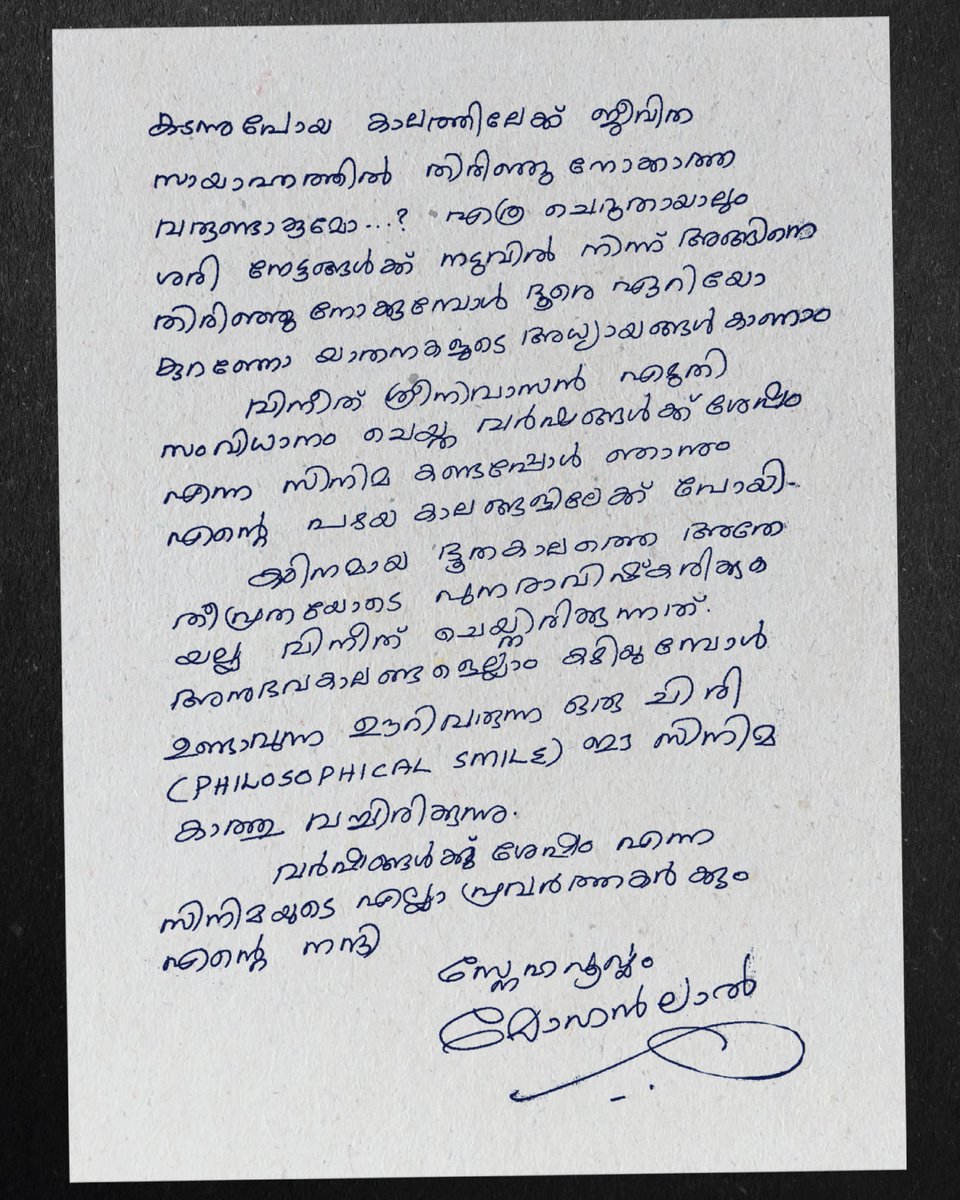 കടന്നുപോയ കാലത്തിലേക്ക് ജീവിത
സായാഹ്നത്തിൽ തിരിഞ്ഞു നോക്കാത്ത
വരുണ്ടാകുമോ...? എത്ര ചെറുതായാലും
ശരി നേട്ടങ്ങൾക്ക് നടുവിൽ നിന്ന് അങ്ങിനെ
തിരിഞ്ഞു നോക്കുമ്പോൾ ദൂരെ ഏറിയോ
കുറഞ്ഞോ യാതനകളുടെ അധ്യായങ്ങൾ കാണാം
വിനീത് ശ്രീനിവാസൻ എഴുതി
സംവിധാനം ചെയ്ത വർഷങ്ങൾക്ക് ശേഷം
എന്ന സിനിമ കണ്ടപ്പോൾ ഞാനും
എന്റെ പഴയ കാലങ്ങളിലേക്ക് പോയി-
കഠിനമായ ഭൂതകാലത്തെ അതേ
തീവ്രതയോടെ പുനരാവിഷ്കരിക്കുക
യല്ല വിനീത് ചെയ്തിരിക്കുന്നത്.
അനുഭവകാലങ്ങളെല്ലാം കഴിയുമ്പോൾ
ഉണ്ടാവുന്ന ഊറിവരുന്ന ഒരു ചിരി
(PHILOSOPHICAL SMILE) ഈ സിനിമ
കാത്തു വച്ചിരിക്കുന്നു.
വർഷങ്ങൾക്കു് ശേഷം എന്ന
സിനിമയുടെ എല്ലാ പ്രവർത്തകർക്കും
എന്റെ നന്ദി
സ്നേഹപൂർവ്വം
മോഹൻലാൽ